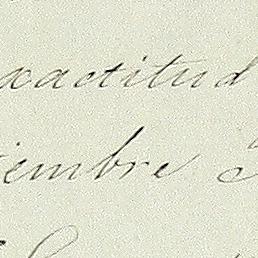 xactitud
iembre